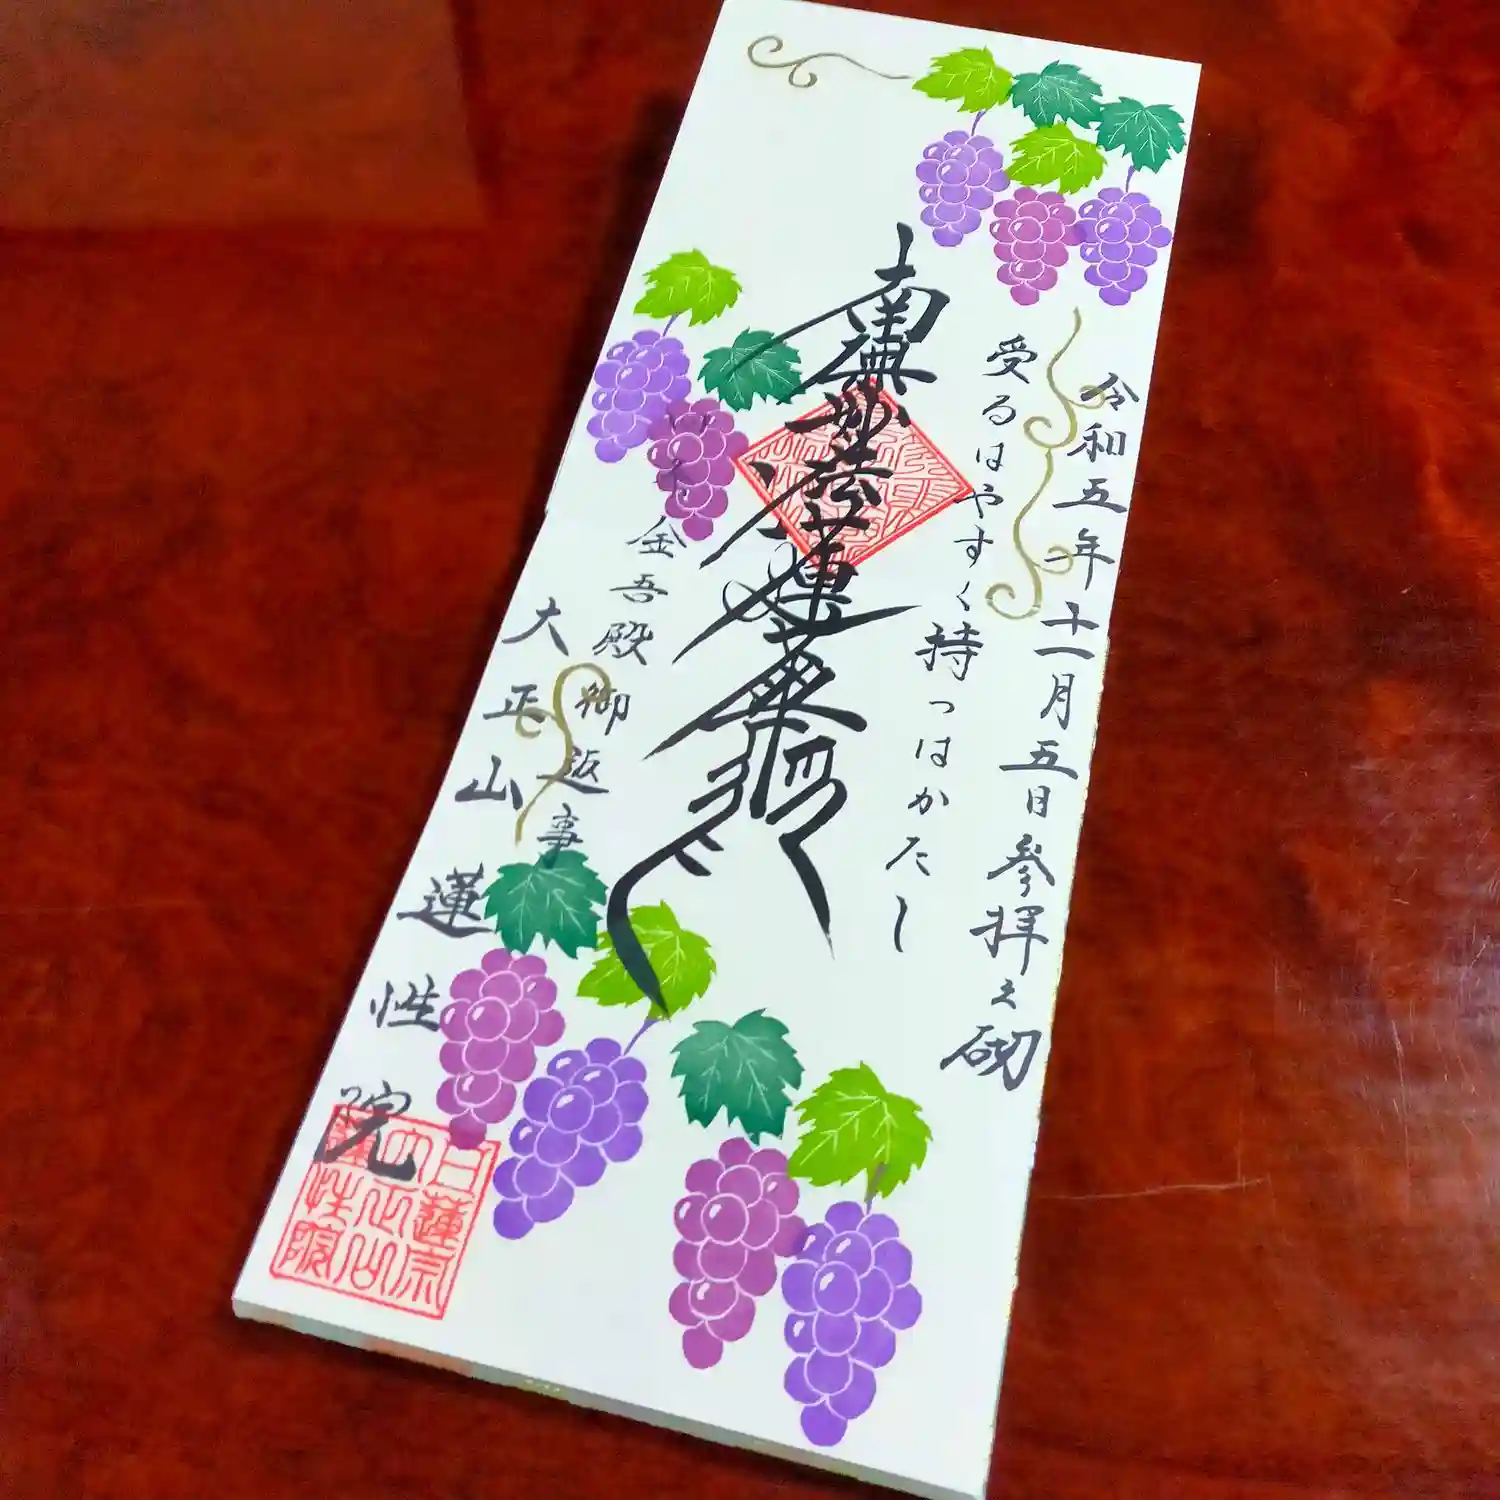 令和五年十一月五日参拝之砌
受るはやすく持つはかたし
南無妙法蓮華経
金吾殿御返事
大正山蓮性院
日蓮宗
大正山
蓮性院